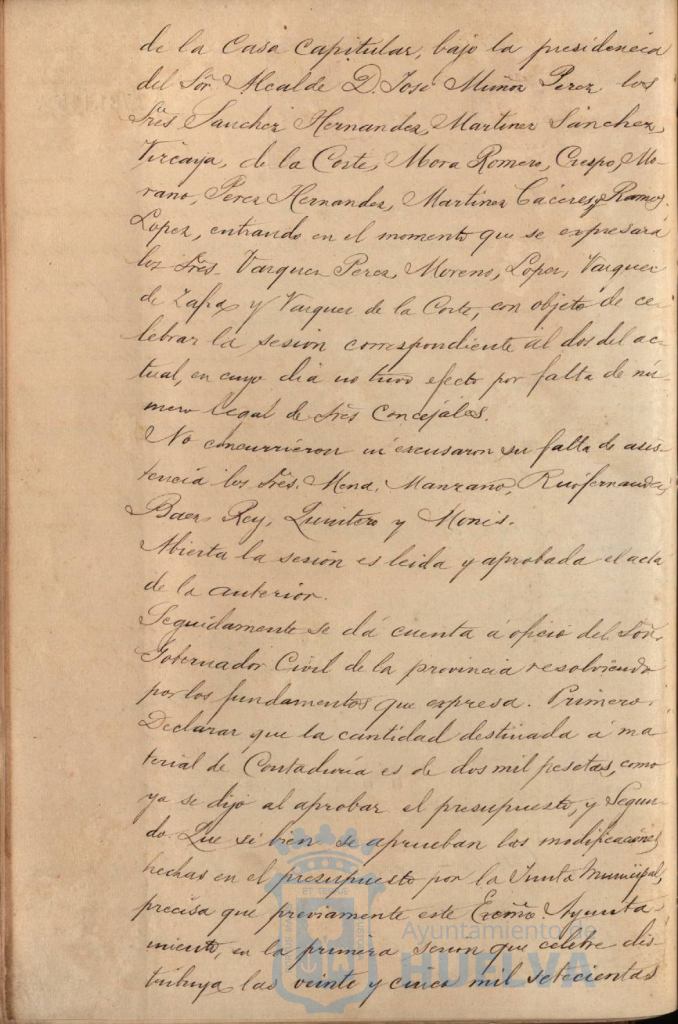 de la Casa Capitular, bajo la presidencia
del Sor. Alcalde D. José Muñoz Perez los
Sres. Sanchez Hernandez, Martinez Sanchez,
Vizcaya, de la Corte, Mora Romero, Crespo, Mo-
rano, Perez Hernandez, Martinez Cáceres y Ramos
Lopez, entrando en el momento que se expresará
los Sres. Vazquez Perez, Moreno, Lopez, Vazquez
de Zafra y Vazquez de la Corte, con objeto de ce-
lebrar la sesion correspondiente al dos del ac-
tual, en cuyo dia no tuvo efecto por falta de nú-
mero legal de Sres. Concejales.
No concurrieron ni escusaron su falta de asis-
tencia los Sres. Mena, Manzano, Ruifernandez,
Baez, Rey, Quintero y Monis.
Abierta la sesión es leida y aprobada el acta
de la anterior.
Seguidamente se dá cuenta á oficio del Sor.
Gobernador Civil de la provincia resolviendo
por los fundamentos que expresa. Primero.
Declarar que la cantidad destinada á ma
terial de Contaduría es de dos mil pesetas, como
ya se dijo al aprobar el presupuesto, y Segun-
do. Que si bien se aprueban las modificaciones
hechas en el presupuesto por la Junta Municipal,
precisa que previamente este Excmo. Ayunta-
miento, en la primera sesion que celebre dis-
tribuya las veinte y cinco mil setecientas
Ayuntamiento de
HUELVA